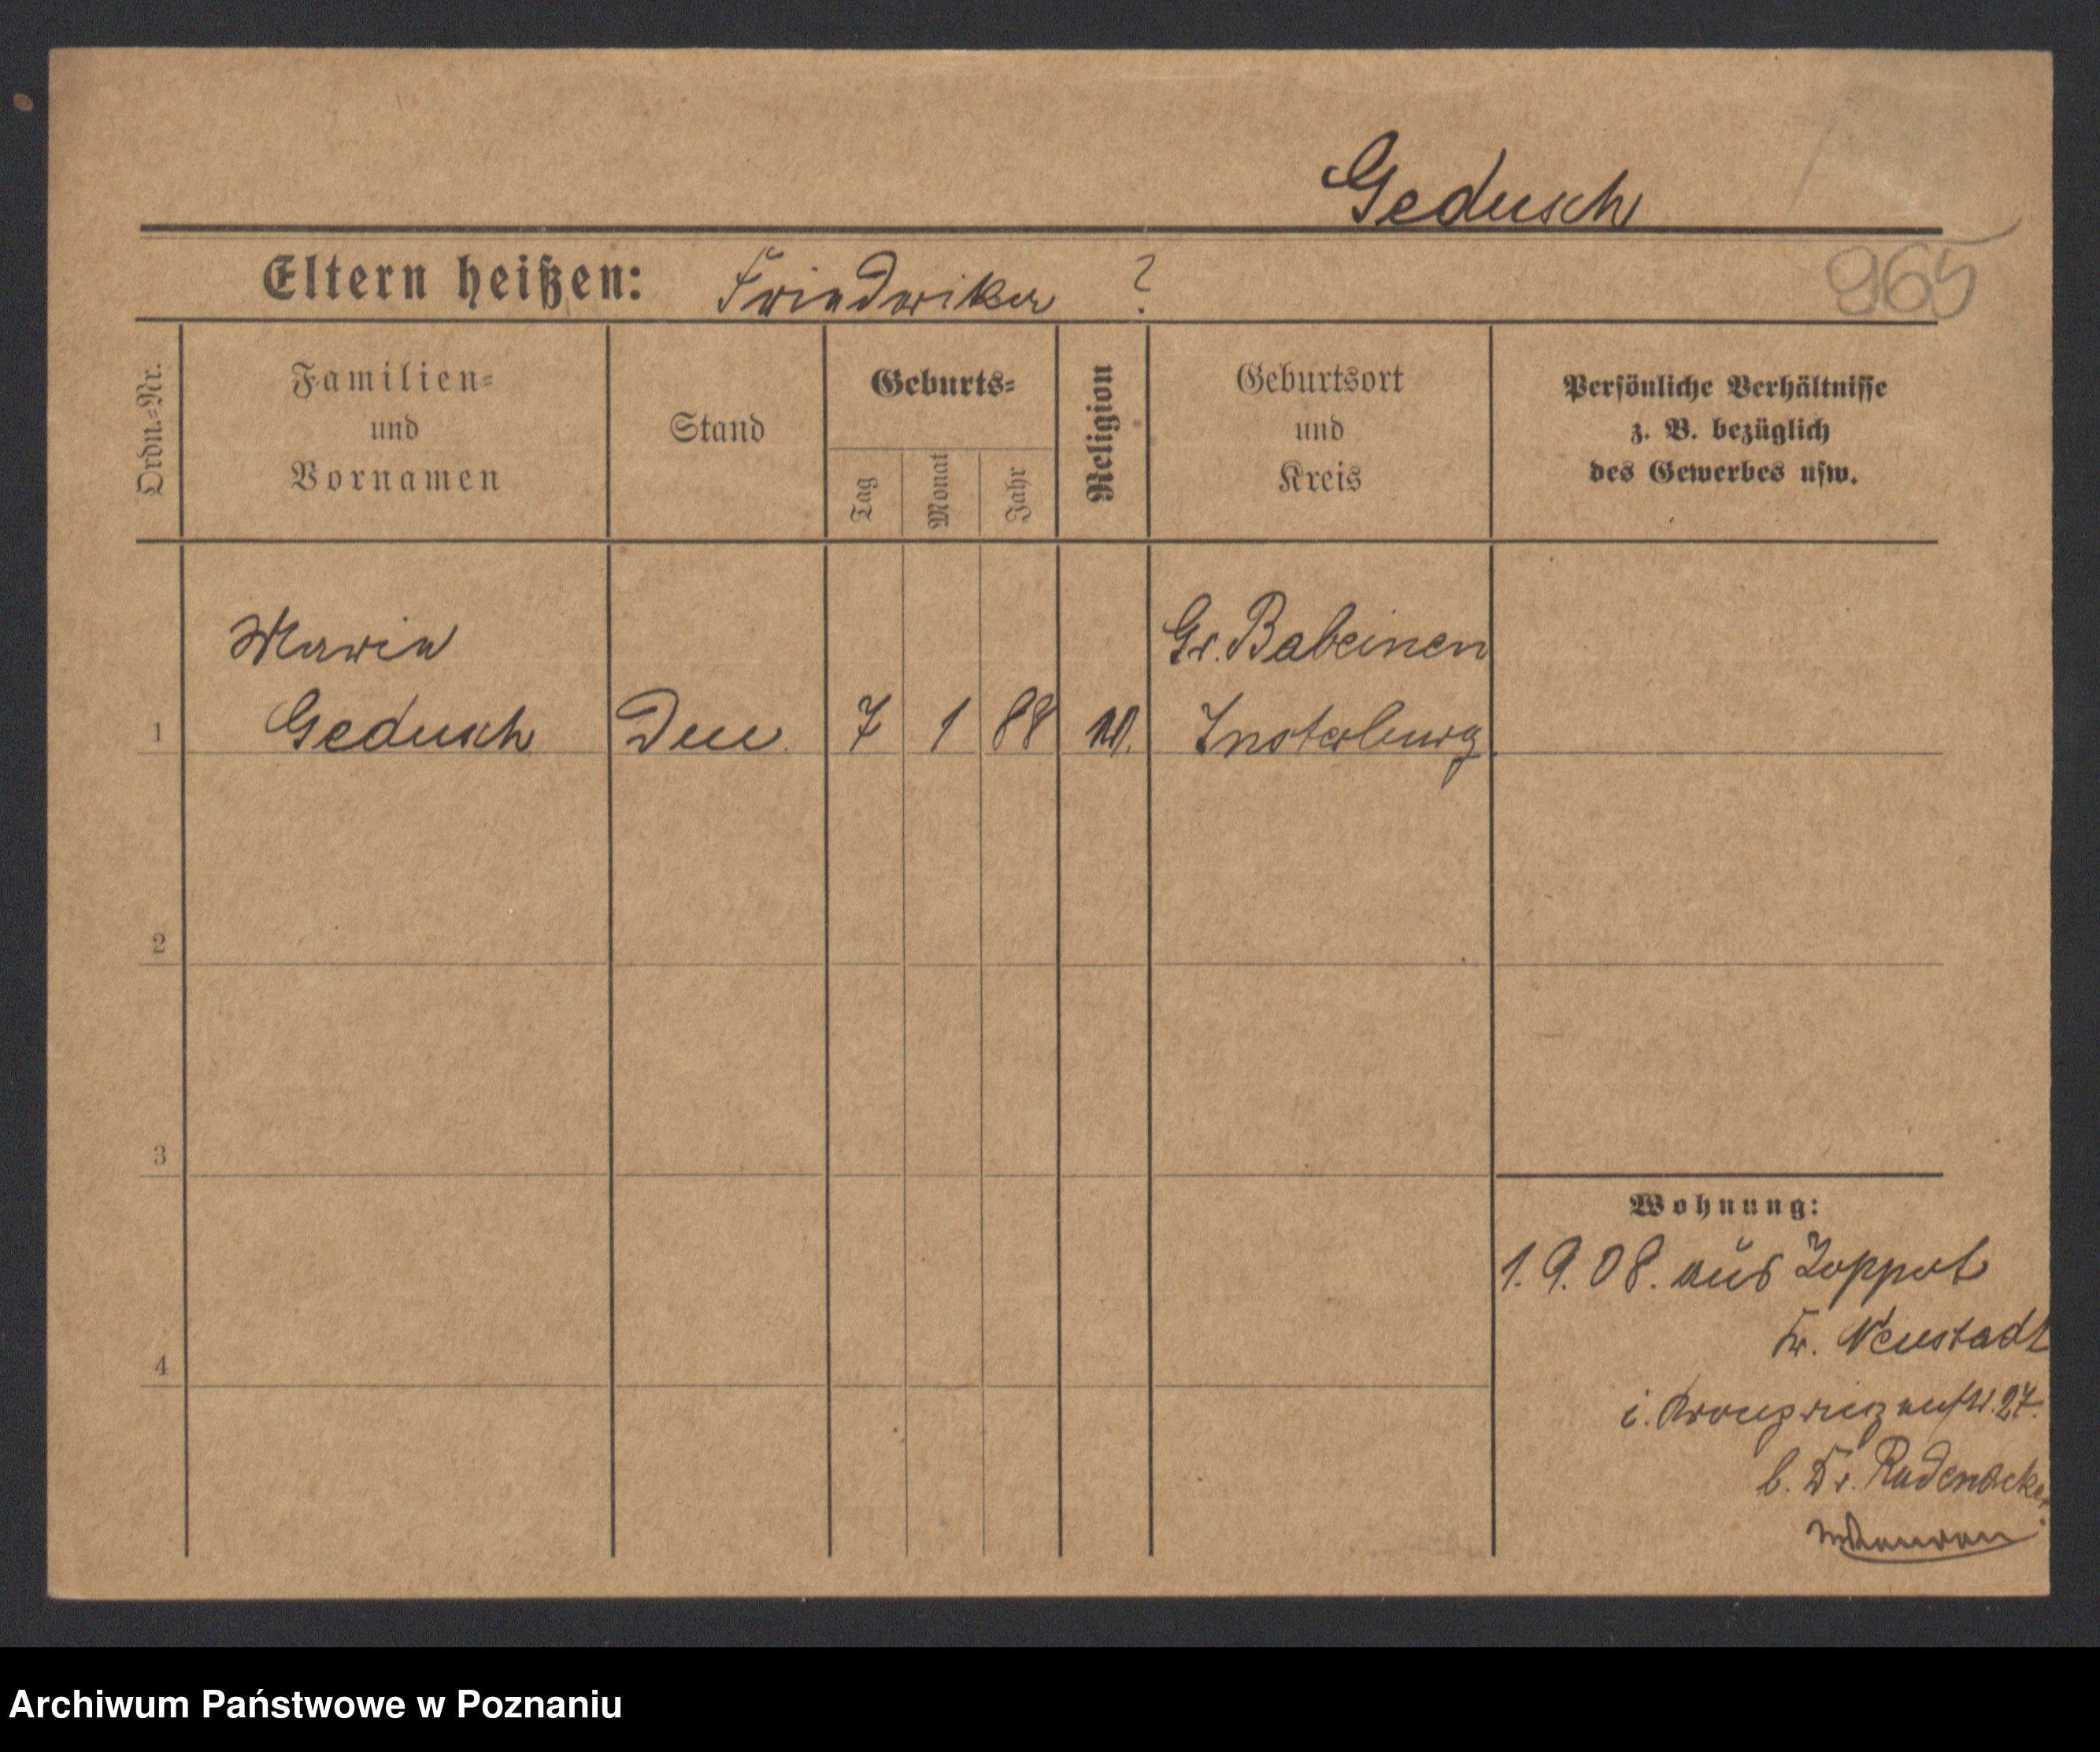 Gedusch
Eltern heißen: Friedrike ?
965
Ordn.=Nr.
Familien=
und
Vornamen
Stand
Geburts=
Tag
Monat
Jahr
Religion
Geburtsort
und
Kreis
Persönliche Verhältnisse
z. B. bezüglich
des Gewerbes usw.
Marie
Gr. Babeinen
1 Gedusch 7 1 88 Insterburg
2
3
Wohnung:
1. 9. 08. aus Zoppot
Kr. Neustadt
4
i. Kronprinzenstr. 27.
b. Dr. Radenacker
Archiwum Państwowe w Poznaniu